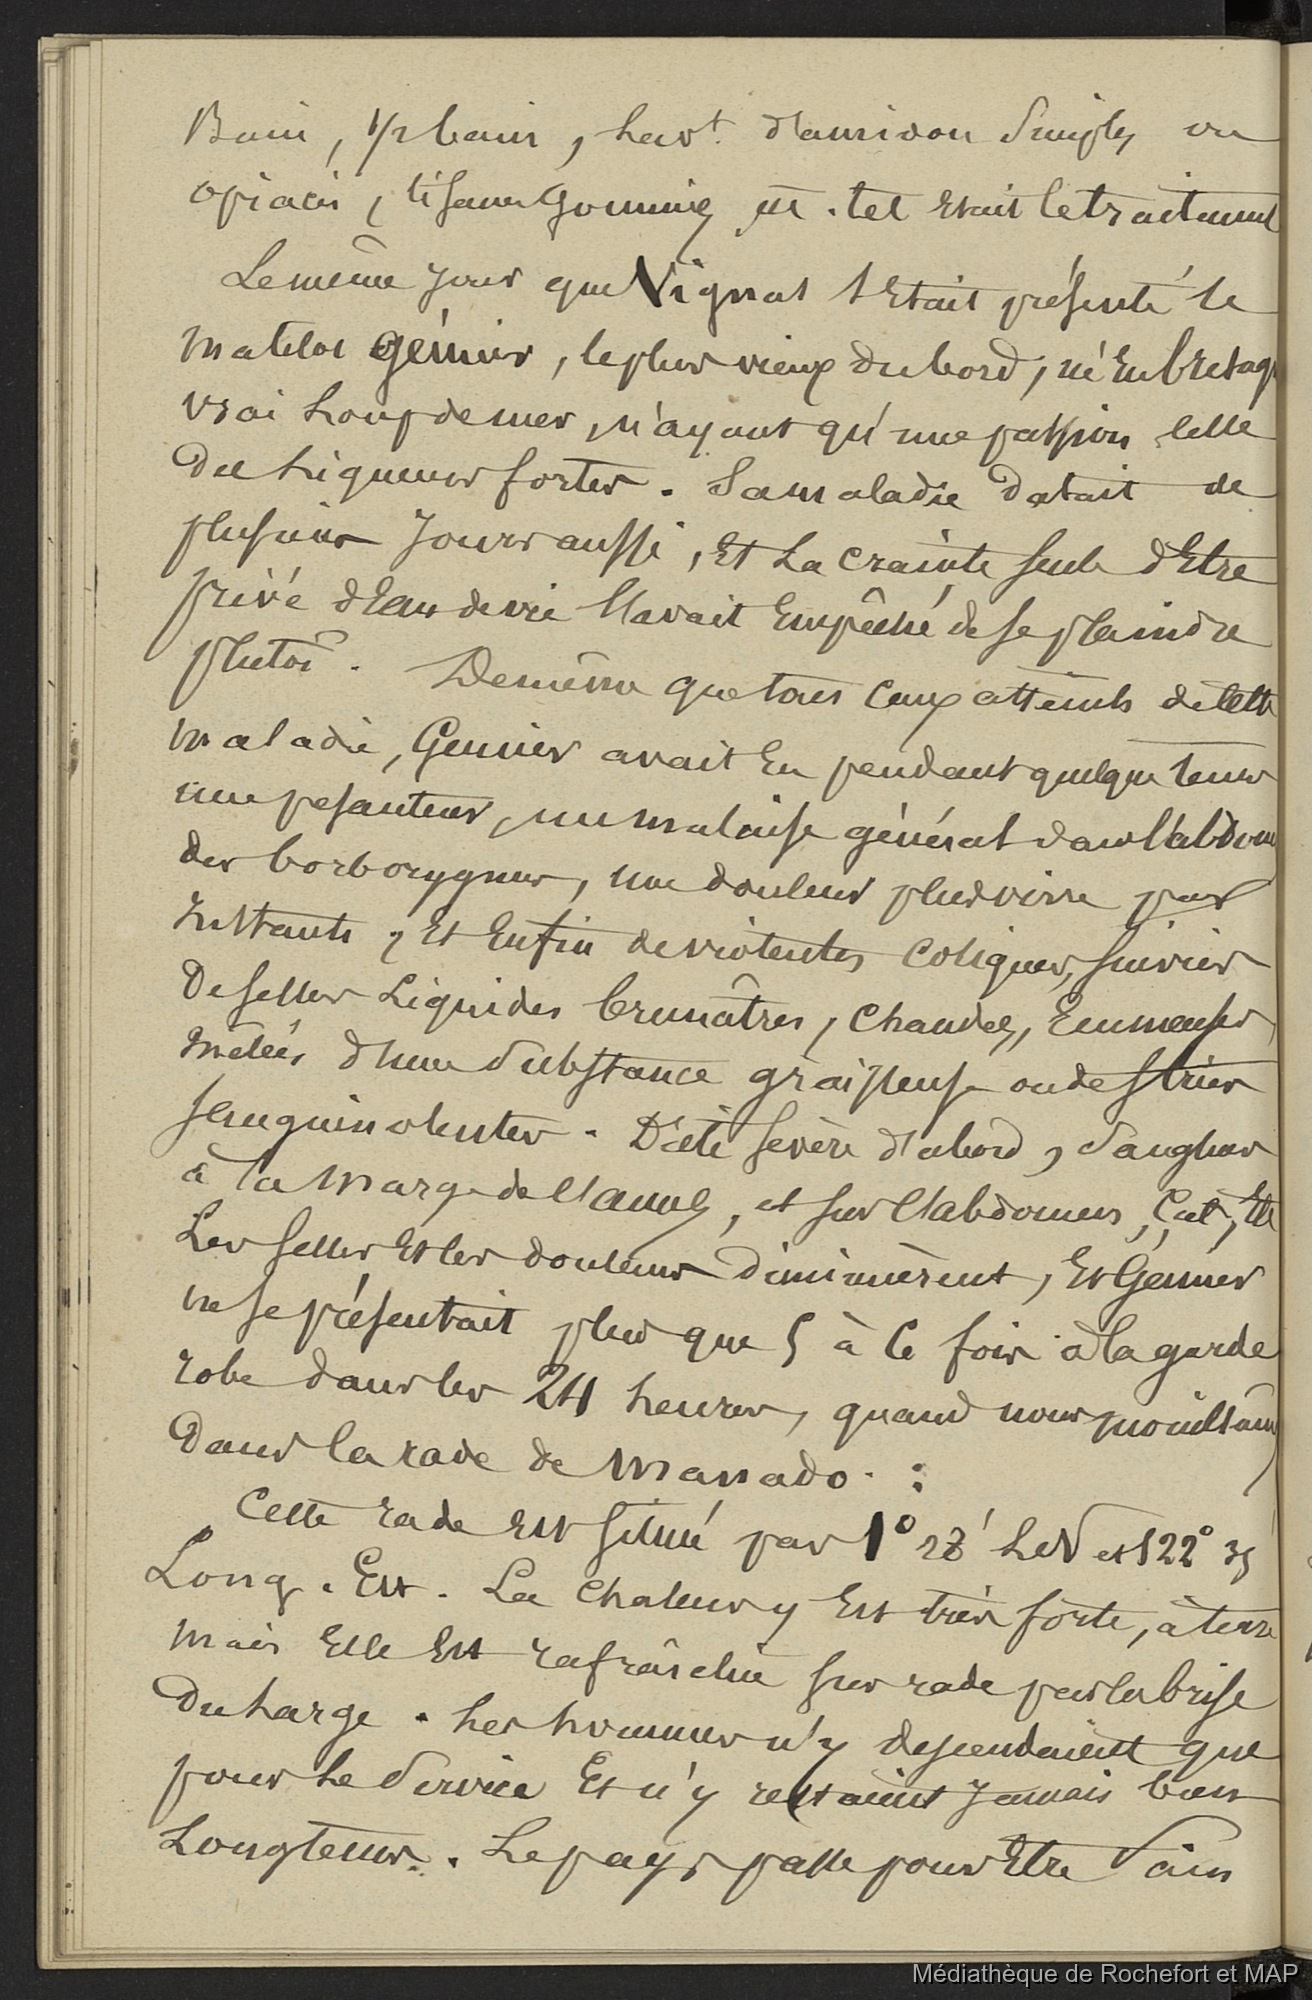 Bain, 1/2 bain, lavt. d'amidon simples ou
opiacés, tisanes gommées, etc. tel était le traitement
Le même jour que Vignal s'était présenté le
matelot Génier, le plus vieux du bord, né en bretagne
vrai Loup de mer, n'ayant qu'une passion celle
des Liqueurs fortes. Sa maladie datait de
plusieurs Jours aussi, Et La crainte seule d'Etre
privé d'Eau de vie l'avait Empêché de se plaindre
plutôt. De même que tous ceux atteints de cette
maladie, Génier avait Eu pendant quelque tems
une pesanteur, un malaise général dans l'abdomen
des borborygmes, une douleur plus vive par
Instants, Et Enfin de violentes coliques, suivies
De selles Liquides brunâtres, chaudes, Ecumeuses,
mêlées d'une substance graisseuse ou de stries
sanguinolentes. Diète sevère d'abord, Sangsues
à la marge de l'anus, et sur l'abdomen, Cat, Etc
Les selles Et les douleurs diminuèrent, Et Génier
ne se présentait plus que 5 à 6 fois à la garde
robe dans les 24 heures, quand nous mouillâmes
Dans la rade de Manado. :
Cette rade Est située par 1° 28' L. N et 122° 35
Long. Est. La chaleur y Est très forte, à terre
mais Elle Est rafraîchie sur rade par la brise
Du Large. Les hommes n'y descendaient que
pour Le Service Et n'y restaient Jamais bien
Longtems. Le pays passe pour Etre Sain
Médiathèque de Rochefort et MAP